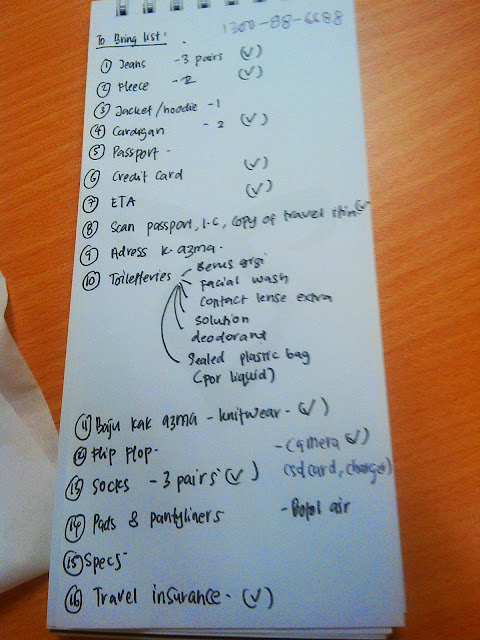 1300-88-6688
To Bring list:
① Jeans - 3 pairs (✓)
② Fleece - 2 (✓)
③ Jacket/hoodie - 1
④ Cardigan - 2 (✓)
⑤ Passport -
⑥ Credit Card (✓)
⑦ ETA (✓)
⑧ Scan passport, I.C, copy of travel itin ✓
⑨ Adress k. azma -
⑩ Toiletteries - Berus gigi
facial wash
contact lense extra
solution
deodorant
Sealed plastic bag
(for liquid)
⑪ Baju kak azma - knitwear - (✓)
⑫ Flip Flop -
- Camera (✓)
(sd card, charger)
⑬ Socks - 3 pairs (✓)
⑭ Pads & pantyliners
- Botol air
⑮ Specs
⑯ Travel insurance - (✓)